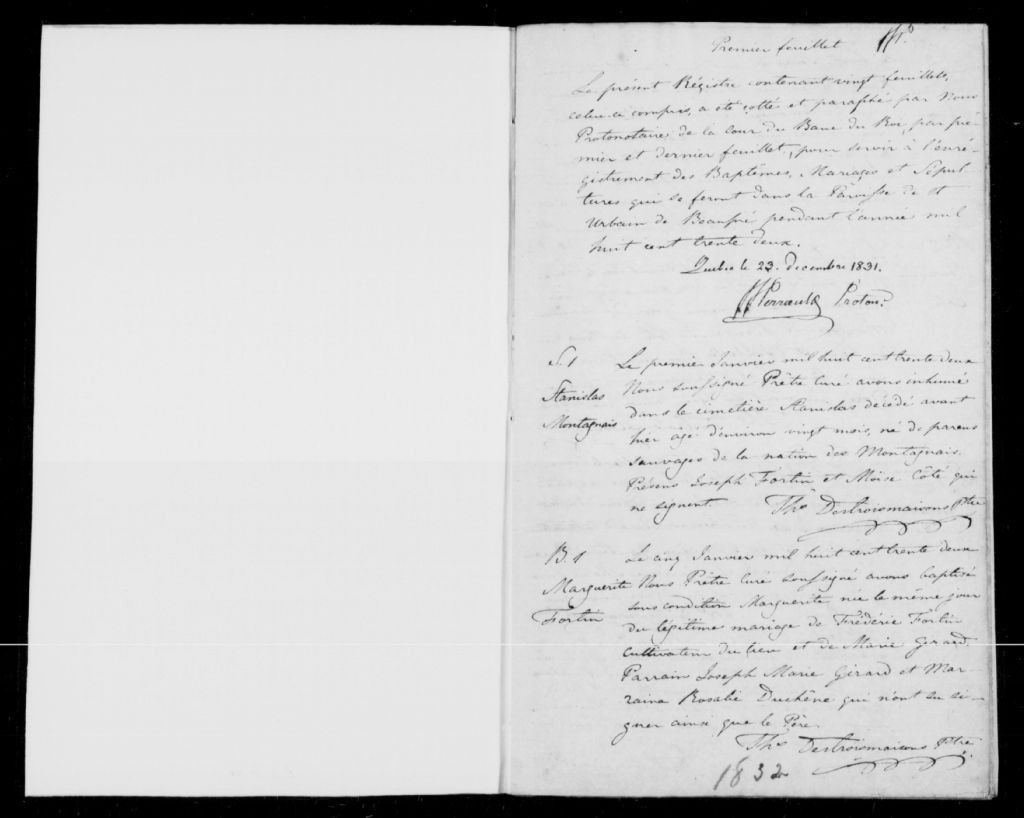 Premier feuillet
Le présent Régistre contenant vingt feuillets,
celui ci compris, a été cotté et paraphé par Nous
Protonotaire de la Cour du Banc du Roi, par pré-
mier et dernier feuillet, pour servir à l'enré-
gistrement des Baptêmes, Mariages et Sépul
tures qui se feront dans la Paroisse de St
Urbain de Beaupré pendant l'année mil
huit cent trente deux.
Québec le 23. Decembre 1831.
Perrault Proton:
S. 1
Stanislas
Montagnais
Le premier Janvier mil huit cent trente deux
Nous soussigné Prêtre Curé avons inhumé
dans le cimetière Stanislas décédé avant
hier âgé d'environ vingt mois, né de parens
Sauvages de la nation des Montagnais.
Présens Joseph Fortin et Moïse Côté qui
ne signent. Ths Destroismaisons Ptre
B. 1
Marguerite
Fortin
Le cinq Janvier mil huit cent trente deux
Nous Prêtre Curé soussigné avons baptisé
sous condition Marguerite née le même jour
du légitime mariage de Fréderic Fortin
Cultivateur du lieu et de Marie Gerard.
Parrain Joseph Marie Girard et Mar-
raine Rosalie Duchêne qui n'ont su si-
gner ainsi que le Père.
Ths Destroismaisons Ptre
1832